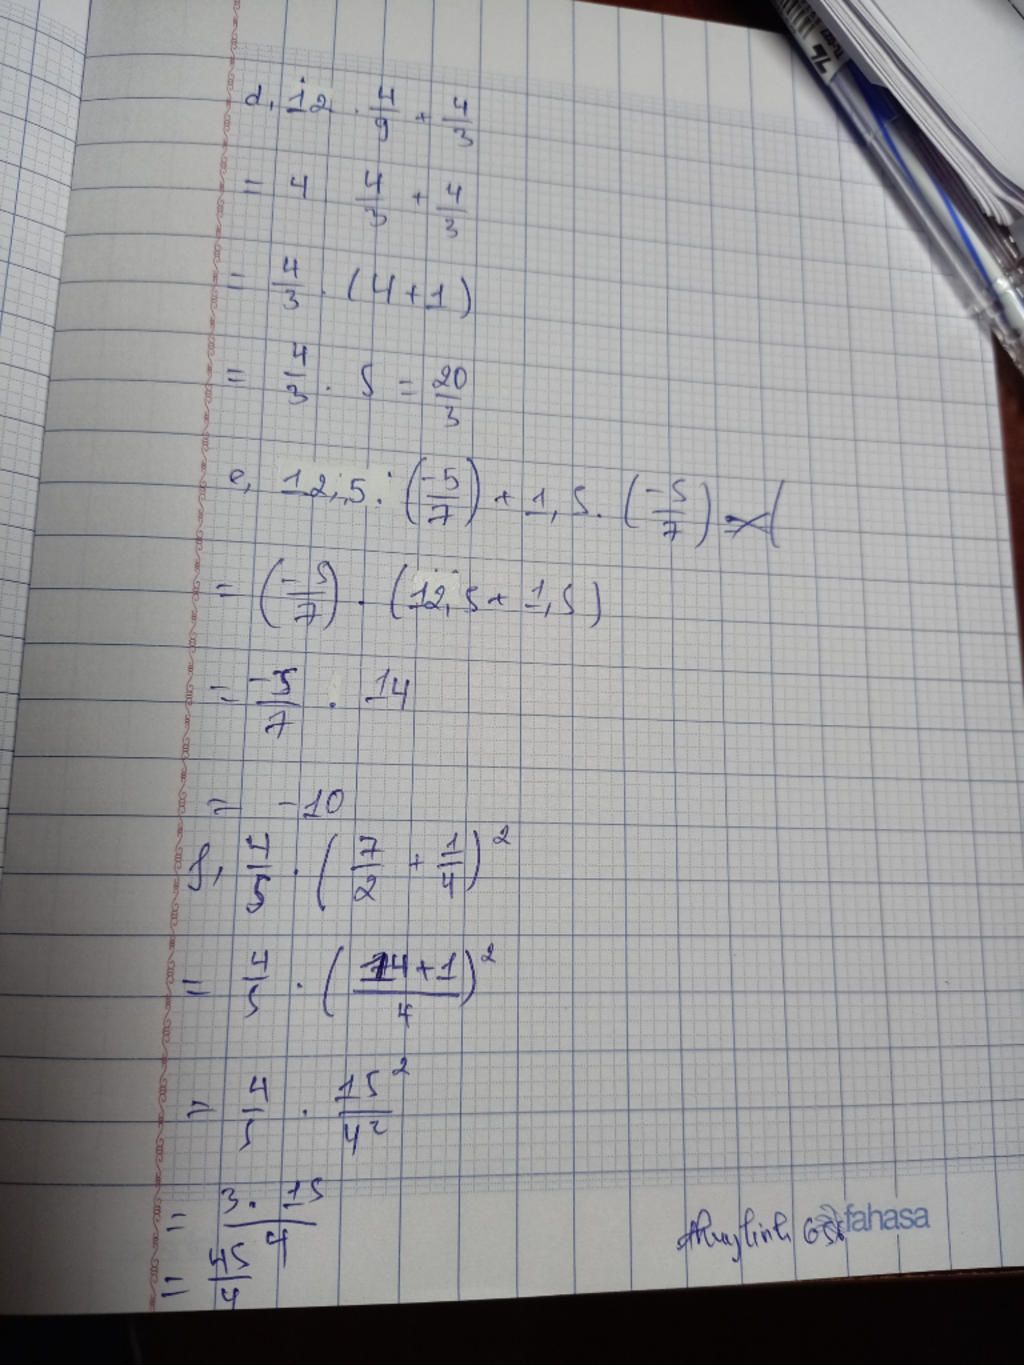 d, 12 . 4/9 + 4/3
= 4 4/3 + 4/3
= 4/3 . (4+1)
= 4/3 . 5 = 20/3
e, 12,5 . (-5/7) + 1,5 . (-5/7)
= (-5/7) . (12,5 + 1,5)
= -5/7 . 14
= -10
f, 4/5 . (7/2 + 1/4)²
= 4/5 . ((14+1)/4)²
= 4/5 . 15²/4²
= (3 . 15)/4
= 45/4
fahasa